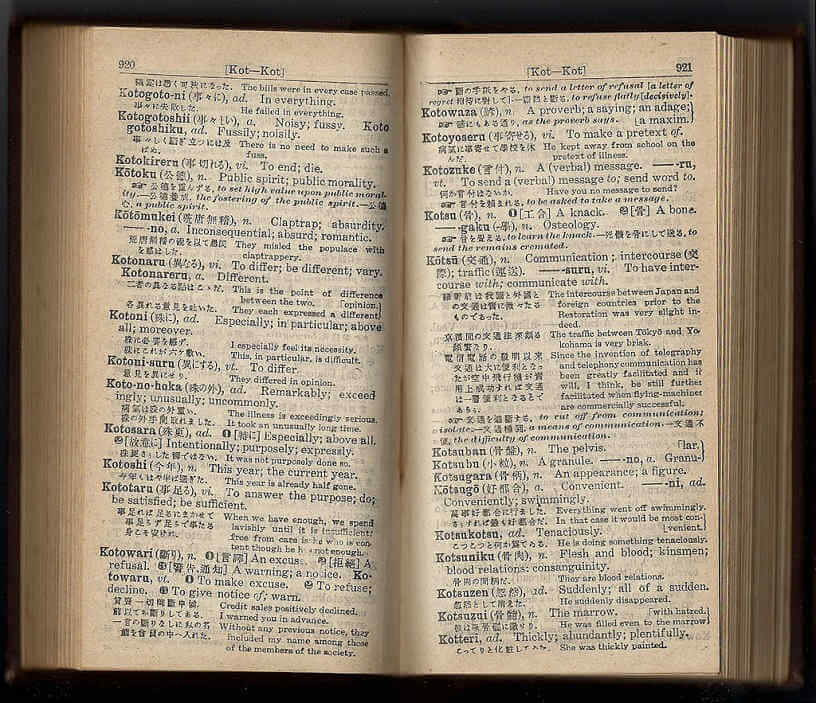 920
[Kot—Kot]
The bills were in every case passed.
Kotogoto-ni (事々に), ad. In everything.
事々に失敗した. He failed in everything.
Kotogotoshii (事々しい), a. Noisy; fussy. Koto
gotoshiku, ad. Fussily; noisily.
There is no need to make such a
fuss.
Kotokireru (事切れる), vi. To end; die.
Kōtoku (公徳), n. Public spirit; public morality.
☞ 公徳を重んずる, to set high value upon public moral-
ity.—公徳養成, the fostering of the public spirit.—公徳
心, a public spirit.
Kōtōmukei (荒唐無稽), n. Claptrap; absurdity.
——-no, a. Inconsequential; absurd; romantic.
They misled the populace with
claptrappery.
Kotonaru (異なる), vi. To differ; be different; vary.
Kotonareru, a. Different.
二者の異なる點はこゝだ. This is the point of difference
between the two. [opinion.]
各異れる意見を吐いた. They each expressed a different
Kotoni (殊に), ad. Especially; in particular; above
all; moreover.
殊に必要を感ず. I especially feel its necessity.
殊にこれが六ケ敷い. This, in particular, is difficult.
Kotoni-suru (異にする), vt. To differ.
意見を異にせり. They differed in opinion.
Koto-no-hoka (殊の外), ad. Remarkably; exceed
ingly; unusually; uncommonly.
病氣は殊の外重い. The illness is exceedingly serious.
殊の外手間取れました. It took an unusually long time.
Kotosara (殊更), ad. ❶ [特に] Especially; above all.
❷ [故意に] Intentionally; purposely; expressly.
殊更さうした譯ではない. It was not purposely done so.
Kotoshi (今年), n. This year; the current year.
今年も半ば過ぎた. This year is already half gone.
Kototaru (事足る), vi. To answer the purpose; do;
be satisfied; be sufficient.
事足れば足るにまかせて When we have enough, we spend
事足らず足らで事たる lavishly until it is insufficient;
身こそ安けれ. free from care is he who is con-
tent though he has not enough.
Kotowari (斷り), n. ❶ [言譯] An excuse. ❷ [拒絕] A
refusal. ❸ [警告, 通知] A warning; a notice. Ko-
towaru, vt. ❶ To make excuse. ❷ To refuse;
decline. ❸ To give notice of; warn.
貸賣一切御斷申候. Credit sales positively declined.
前以てお斷りしてある. I warned you in advance.
一言の斷りなしに私の名 Without any previous notice, they
前を會員の中へ入れた. included my name among those
of the members of the society.
[Kot—Kot]
921
☞ 斷の手紙をやる, to send a letter of refusal [a letter of
regret 招待に對して].—斷然と斷る, to refuse flatly [decisively].
Kotowaza (諺), n. A proverb; a saying; an adage;
☞ 諺にもある通り, as the proverb says. [a maxim.]
Kotoyoseru (事寄せる), vi. To make a pretext of.
病氣に事寄せて學校を休 He kept away from school on the
んだ. pretext of illness.
Kotozuke (言付), n. A (verbal) message. ——-ru,
vt. To send a (verbal) message to; send word to.
何か言付はないか. Have you no message to send?
☞ 言付を頼まれる, to be asked to take a message.
Kotsu (骨), n. ❶ [工合] A knack. ❷ [骨] A bone.
——-gaku (-學), n. Osteology.
☞ 骨を覺える, to learn the knack.—死骸を骨にして送る, to
send the remains cremated.
Kōtsū (交通), n. Communication; intercourse (交
際); traffic (運送). ——-suru, vi. To have inter-
course with; communicate with.
維新前は我國と外國と The intercourse between Japan and
の交通は實に微々たる foreign countries prior to the
ものであった. Restoration was very slight in-
deed.
京濱間の交通往來頗る The traffic between Tōkyō and Yo-
頻繁なり. kohama is very brisk.
電信電話の發明以來 Since the invention of telegraphy
交通は大に便利となっ and telephony communication has
たが空中飛行機が實 been greatly facilitated and it
用上成功すれば交通 will, I think, be still further
は一層便利となるとで facilitated when flying-machines
あらう. are commercially successful.
☞ 交通を遮斷する, to cut off from communication;
isolate.—交通機關, a means of communication.—交通不
便, the difficulty of communication.
Kotsuban (骨盤), n. The pelvis. [lar.]
Kotsubu (小粒), n. A granule. ——-no, a. Granu-
Kotsugara (骨柄), n. An appearance; a figure.
Kōtsugō (好都合), a. Convenient. ——-ni, ad.
Conveniently; swimmingly.
萬事好都合に行きました. Everything went off swimmingly.
さうすれば最も好都合だ. In that case it would be most con-
[venient.]
Kotsukotsu, ad. Tenaciously.
こつこつと何か爲てゐる. He is doing something tenaciously.
Kotsuniku (骨肉), n. Flesh and blood; kinsmen;
blood relations: consanguinity.
骨肉の間柄だ. They are blood relations.
Kotsuzen (忽然), ad. Suddenly; all of a sudden.
忽然として消えた. He suddenly disappeared.
Kotsuzui (骨髓), n. The marrow. [with hatred.]
He was filled even to the marrow
Kotteri, ad. Thickly; abundantly; plentifully.
こってりと化粧してゐた. She was thickly painted.